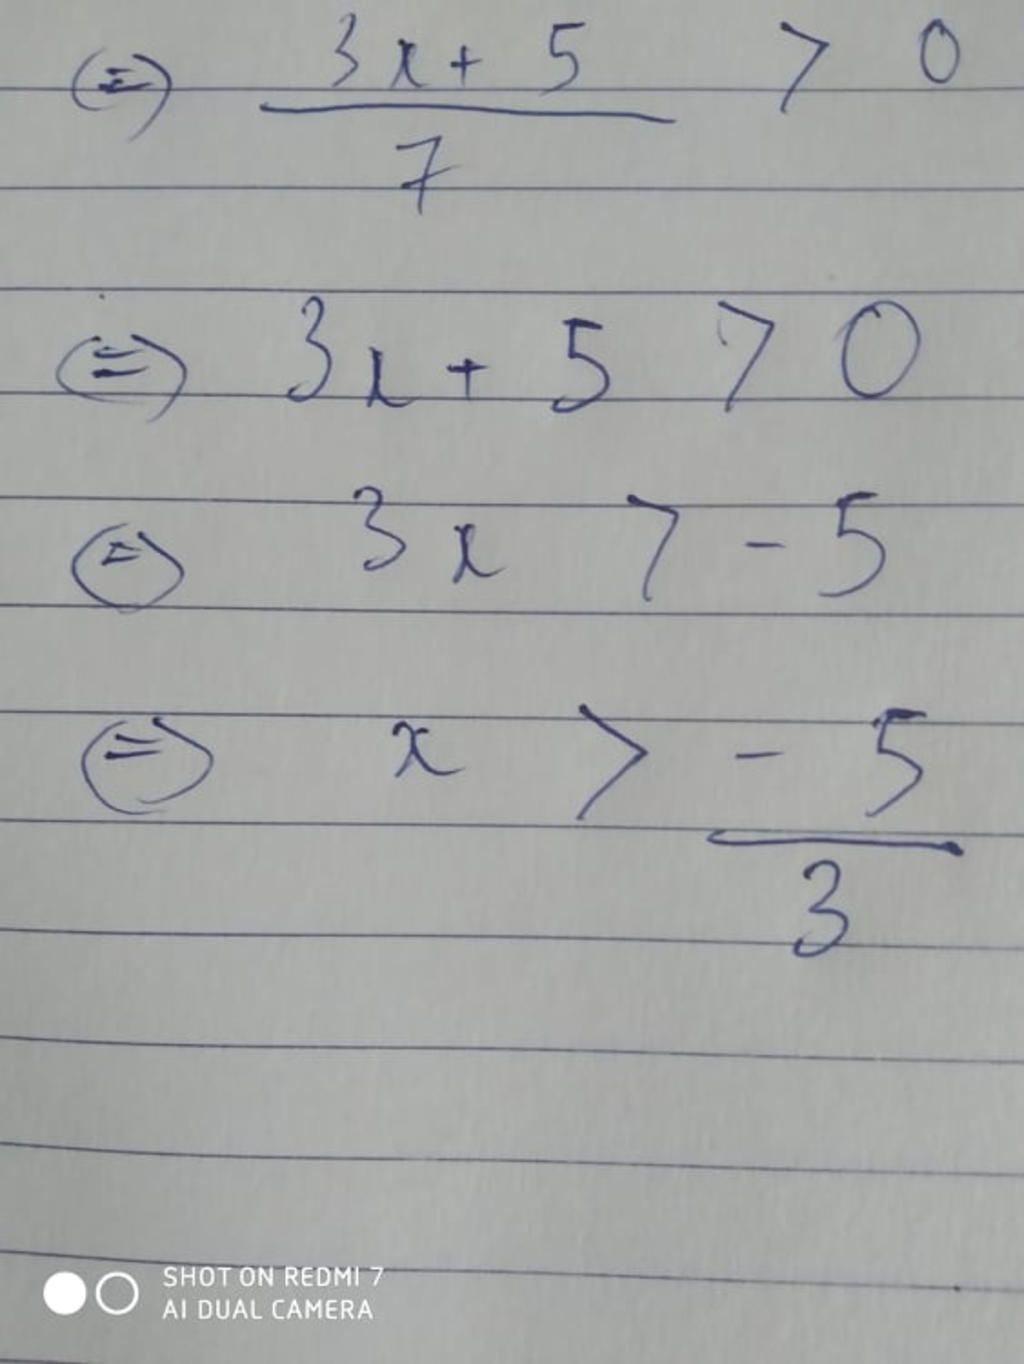 (=) (3x + 5)/7 > 0
(=) 3x + 5 > 0
(=) 3x > -5
(=) x > -5/3
SHOT ON REDMI 7
AI DUAL CAMERA